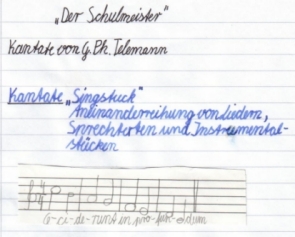 „Der Schulmeister"
Kantate von G. Ph. Telemann
Kantate „Singstück"
Aneinanderreihung von Liedern,
Sprechtexten und Instrumental-
stücken
Ce-ci-de-runt in pro-fun-dum